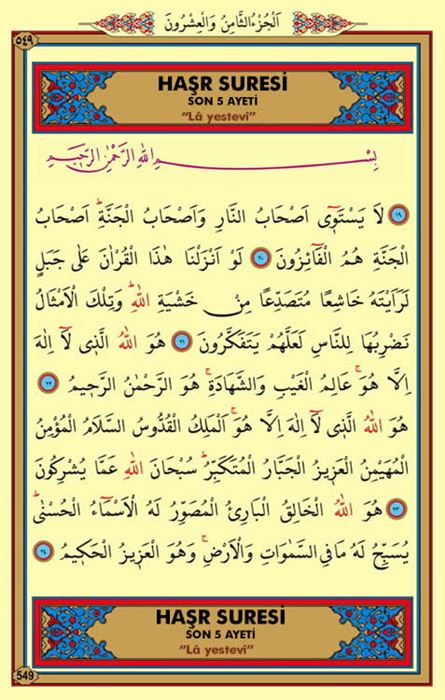 اَلْجُزْءُ الثَّامِنُ وَالْعِشْرُونَ
٥٤٩
HAŞR SURESİ
SON 5 AYETİ
“Lâ yestevî”
بِسْمِ اللهِ الرَّحْمٰنِ الرَّحِيمِ
١٩ لَا يَسْتَوٖٓى اَصْحَابُ النَّارِ وَاَصْحَابُ الْجَنَّةِۜ اَصْحَابُ
الْجَنَّةِ هُمُ الْفَٓائِزُونَ ٢٠ لَوْ اَنْزَلْنَا هٰذَا الْقُرْاٰنَ عَلٰى جَبَلٍ
لَرَاَيْتَهُ خَاشِعًا مُتَصَدِّعًا مِنْ خَشْيَةِ اللهِۜ وَتِلْكَ الْاَمْثَالُ
نَضْرِبُهَا لِلنَّاسِ لَعَلَّهُمْ يَتَفَكَّرُونَ ٢١ هُوَ اللهُ الَّذٖى لَٓا اِلٰهَ
اِلَّا هُوَۚ عَالِمُ الْغَيْبِ وَالشَّهَادَةِۚ هُوَ الرَّحْمٰنُ الرَّحٖيمُ ٢٢
هُوَ اللهُ الَّذٖى لَٓا اِلٰهَ اِلَّا هُوَۚ اَلْمَلِكُ الْقُدُّوسُ السَّلَامُ الْمُؤْمِنُ
الْمُهَيْمِنُ الْعَزٖيزُ الْجَبَّارُ الْمُتَكَبِّرُۜ سُبْحَانَ اللهِ عَمَّا يُشْرِكُونَ
٢٣ هُوَ اللهُ الْخَالِقُ الْبَارِئُ الْمُصَوِّرُ لَهُ الْاَسْمَٓاءُ الْحُسْنٰىۜ
يُسَبِّحُ لَهُ مَا فِي السَّمٰوَاتِ وَالْاَرْضِۚ وَهُوَ الْعَزٖيزُ الْحَكٖيمُ ٢٤
HAŞR SURESİ
SON 5 AYETİ
“Lâ yestevî”
549